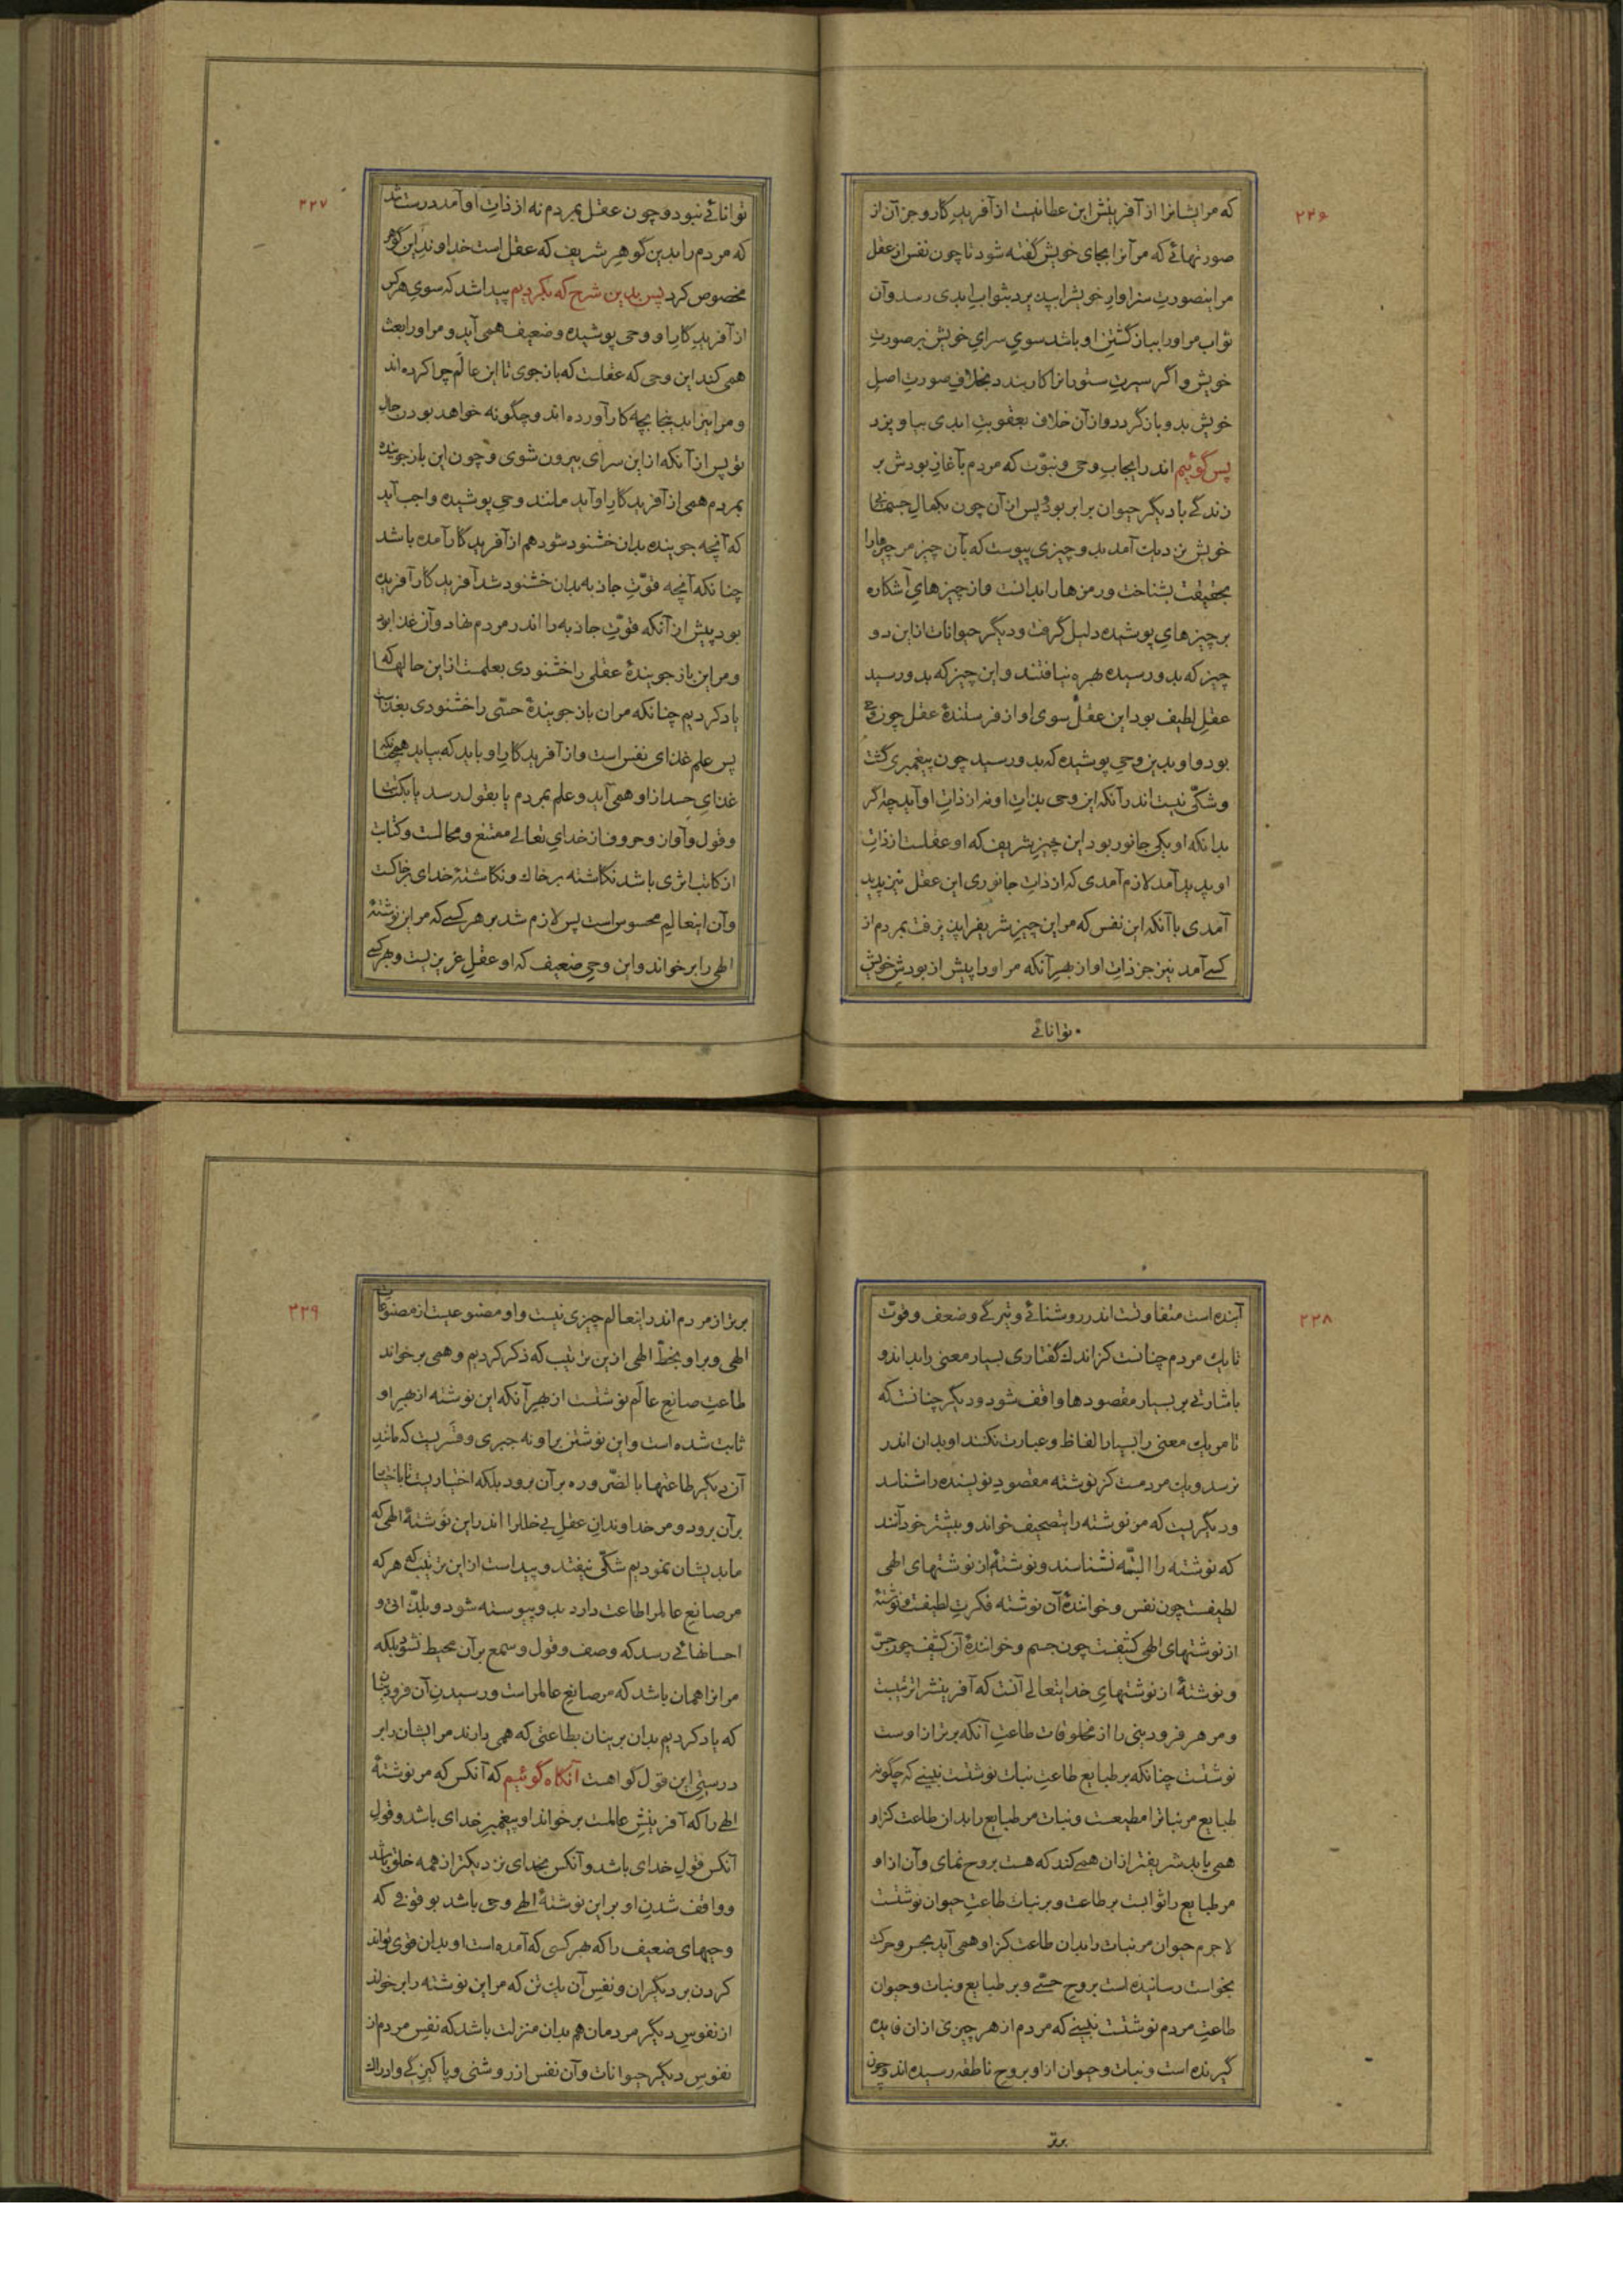 ۲۲۶
که مر ایشانرا از آفرینش این عطا نیست از آفریدگار و جز آن از
صورتهائی که مر آنرا بجای خویش گفته شود تا چون نفس از عقل
مر اینصورت سزاوار خویشرا بپذیرد بثواب ابدی رسد و آن
ثواب مر او را بباز گشتن او باشد سوی سرای خویش بر صورت
خویش و اگر سیرت ستورانرا کار بندد بخلاف صورت اصل
خویش بدو باز گردد و از آن خلاف بعقوبت ابدی بیاویزد
پس گوئیم اندر ایجاب وحی و نبوّت که مردم بآغاز بودش بر
زندگی با دیگر حیوان برابر بود و پس از آن چون بکمال جسمانی
خویش نزدیک آمد بدو چیزی پیوست که بآن چیز مر چیزها را
بحقیقت بشناخت و رمزها را بدانست و از چیزهای آشکاره
بر چیزهای پوشیده دلیل گرفت و دیگر حیوانات از این دو
چیز که بدو رسیده بهره نیافتند و این چیز که بدو رسید
عقل لطیف بود این عقل سوی او از فرستندهٔ عقل چون وحی
بود و او بدین وحی پوشیده که بدو رسید چون پیغمبری گشت
و شکّی نیست اندر آنکه این وحی بذات او نه از ذات او آید چه اگر
بدانکه او یکی جانور بود این چیز شریف که او عقلست از ذات
او پدید آمد لازم آمدی که از ذات جانوری این عقل نیز پدید
آمدی با آنکه این نفس که مر این چیز شریفرا پذیرفت بمردم از
کسی آمد نیز جز ذات او از بهر آنکه مر او را پیش از بودش خویش
توانائی
۲۲۷
توانائی نبود و چون عقل بمردم نه از ذات او آمد درست شد
که مردم را بدین گوهر شریف که عقل است خداوند این گوهر
مخصوص کرد پس بدین شرح که بکردیم پیدا شد که سوی هر کس
از آفریدگار او وحی پوشیده و ضعیف همی آید و مر او را بعث
همی کند این وحی که عقلست که باز جوی تا این عالم چرا کرده اند
و مر اینزا بدینجا بچه کار آورده اند و چگونه خواهد بودن حال
تو پس از آنکه از این سرای بیرون شوی و چون این باز جوینده
بمردم همی از آفریدگار او آید مانند وحی پوشیده واجب آید
که آنچه جوینده بدان خشنود شود هم از آفریدگار آمده باشد
چنانکه آنچه قوّت جاذبه بدان خشنود شد آفریدگار آفریده
بود پیش از آنکه قوّت جاذبه را اندر مردم نهاد و آن غذا بود
و مر این باز جویندهٔ عقلی را خشنودی بعلمست از این حالها که
یاد کردیم چنانکه مر ان باز جویندهٔ حسّی را خشنودی بغذاست
پس علم غذای نفس است و از آفریدگار او باید که بیاید همچنانکه
غذای جسد از او همی آید و علم بمردم یا بقول رسد یا بکتابت
و قول و آواز و حروف از خدای تعالی ممتنع و محالست و کتابت
از کاتب اثری باشد نگاشته بر خاک و نگاشتهٔ خدای بر خاکست
و آن اینعالم محسوس است پس لازم شد بر هر کسی که مر این نوشتهٔ
الهی را بر خواند و این وحی ضعیف که او عقل غریزیست و بهر کسی
۲۲۸
آینده است متفاوتست اندر روشنائی و تیرگی و ضعف و قوّت
تا یک مردم چنانست کز اندک گفتاری بسیار معنی را بداند و
باشارتی بر بسیار مقصودها واقف شود و دیگر چنانست که
تا مر یک معنی را بسیار الفاظ و عبارت نکنند او بدان اندر
نرسد و یک مردمست کز نوشته مقصود نویسنده را شناسد
و دیگریست که مر نوشته را بتصحیف خواند و بیشتر خود آنند
که نوشته را البتّه نشناسند و نوشتهٔ از نوشتهای الهی
لطیفست چون نفس و خوانندهٔ آن نوشته فکرت لطیفست و نوشتهٔ
از نوشتهای الهی کثیفست چون جسم و خوانندهٔ آن کثیف چون حسّ
و نوشتهٔ از نوشتهای خدایتعالی آنست که آفرینش را ترتیبست
و مر هر فرودینی را از مخلوقات طاعت آنکه برتر از اوست
نوشتست چنانکه بر طبایع طاعت نبات نوشتست نبینی که چگونه
طبایع مر نباترا مطیعست و نبات مر طبایع را بدان طاعت کز او
همی یابد شریفتر از ان همی کند که هست بروح نمای و آن از او
مر طبایع را ثوابست بر طاعت و بر نبات طاعت حیوان نوشتست
لا جرم حیوان مر نبات را بدان طاعت کز او همی آید بحسّ و حرکت
بخواست رسانیده است بروح حسّی و بر طبایع و نبات و حیوان
طاعت مردم نوشتست نبینی که مردم از هر چیزی از ان فایده
گیرنده است و نبات و حیوان از او بروح ناطقه رسیده اند و چون
برتر
۲۲۹
برتر از مردم اندر اینعالم چیزی نیست و او مصنوعیست از مصنوعات
الهی و بر او بخطّ الهی از ین ترتیب که ذکر کردیم و همی بر خواند
طاعت صانع عالم نوشتست از بهر آنکه این نوشته از بهر او
ثابت شده است و این نوشتن بر او نه جبری و قسریست که مانند
آن دیگر طاعتها بالضّروره بر آن برود بلکه اختیاریست تا باختیار
بر آن برود و مر خداوندان عقل بی خلل را اندر این نوشتهٔ الهی که
ما بدیشان نمودیم شکّی نیفتد و پیداست از این ترتیب که هر که
مر صانع عالم را طاعت دارد بدو پیوسته شود و بلذّاتی و
احسانهائی رسد که وصف و قول و سمع بر آن محیط نشود بلکه
مر انرا همان باشد که مر صانع عالم راست و رسیدن آن فرودینان
که یاد کردیم بدان برینان بطاعتی که همی دارند مر ایشان را بر
درستی این قول گواهست آنگاه گوئیم که آنکس که مر نوشتهٔ
الهی را که آفرینش عالمست بر خواند او پیغمبر خدای باشد و قول
آنکس قول خدای باشد و آنکس بخدای نزدیکتر از همه خلق باشد
و واقف شدن او بر این نوشتهٔ الهی وحی باشد بوقوفی که
وحیهای ضعیف را که بهر کسی که آمده است او بدان قوی تواند
کردن بر دیگران و نفس آن یک تن که مر این نوشته را بر خواند
از نفوس دیگر مردمان هم بدان منزلت باشد که نفس مردم از
نفوس دیگر حیوانات و آن نفس از روشنی و پاکیزگی و ادراک